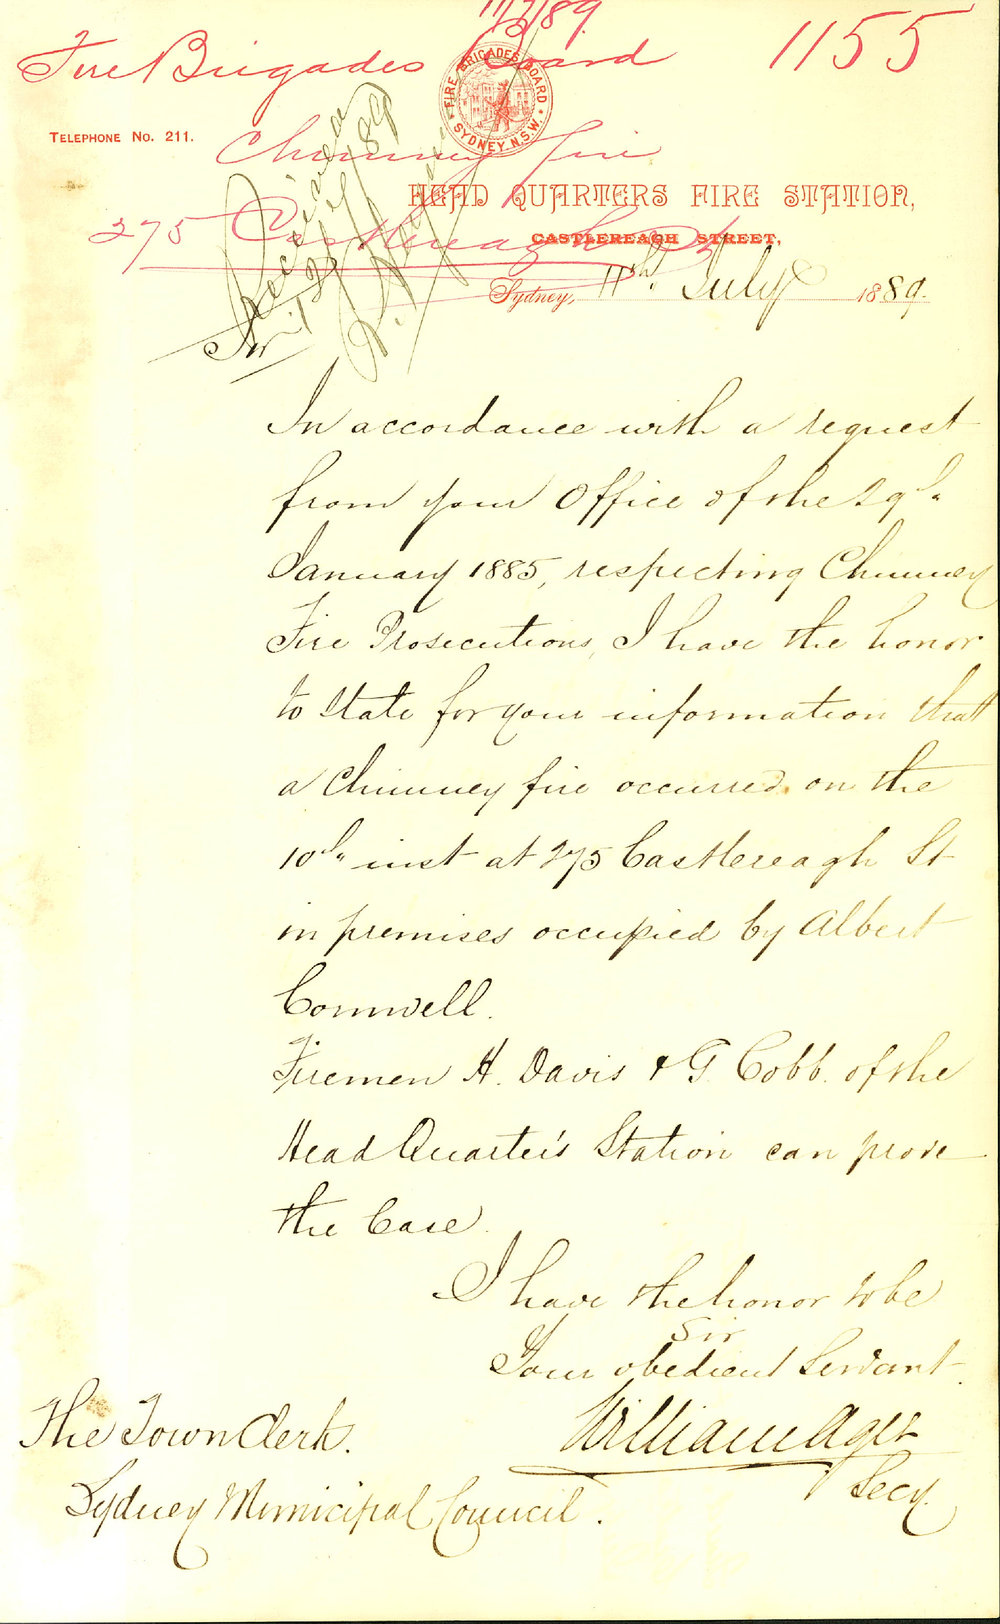 11/7/89.
Fire Brigades Board 1155
FIRE BRIGADES BOARD
SYDNEY. N.S.W.
TELEPHONE No. 211.
Chimney fire
HEAD QUARTERS FIRE STATION,
275 Castlereagh St
CASTLEREAGH STREET,
Sydney, 11th. July 1889.
Received
Sir,
In accordance with a request
from your Office of the 29th
January 1885, respecting Chimney
Fire Prosecutions, I have the honor
to state for your information that
a Chimney fire occurred on the
10th inst at 275 Castlereagh St
in premises occupied by Albert
Cornwell.
Firemen H. Davis & G. Cobb. of the
Head Quarter's Station can prove
the Case.
I have the honor to be
Sir
Your obedient Servant.
William Ager
Secy.
The Town Clerk.
Sydney Municipal Council.